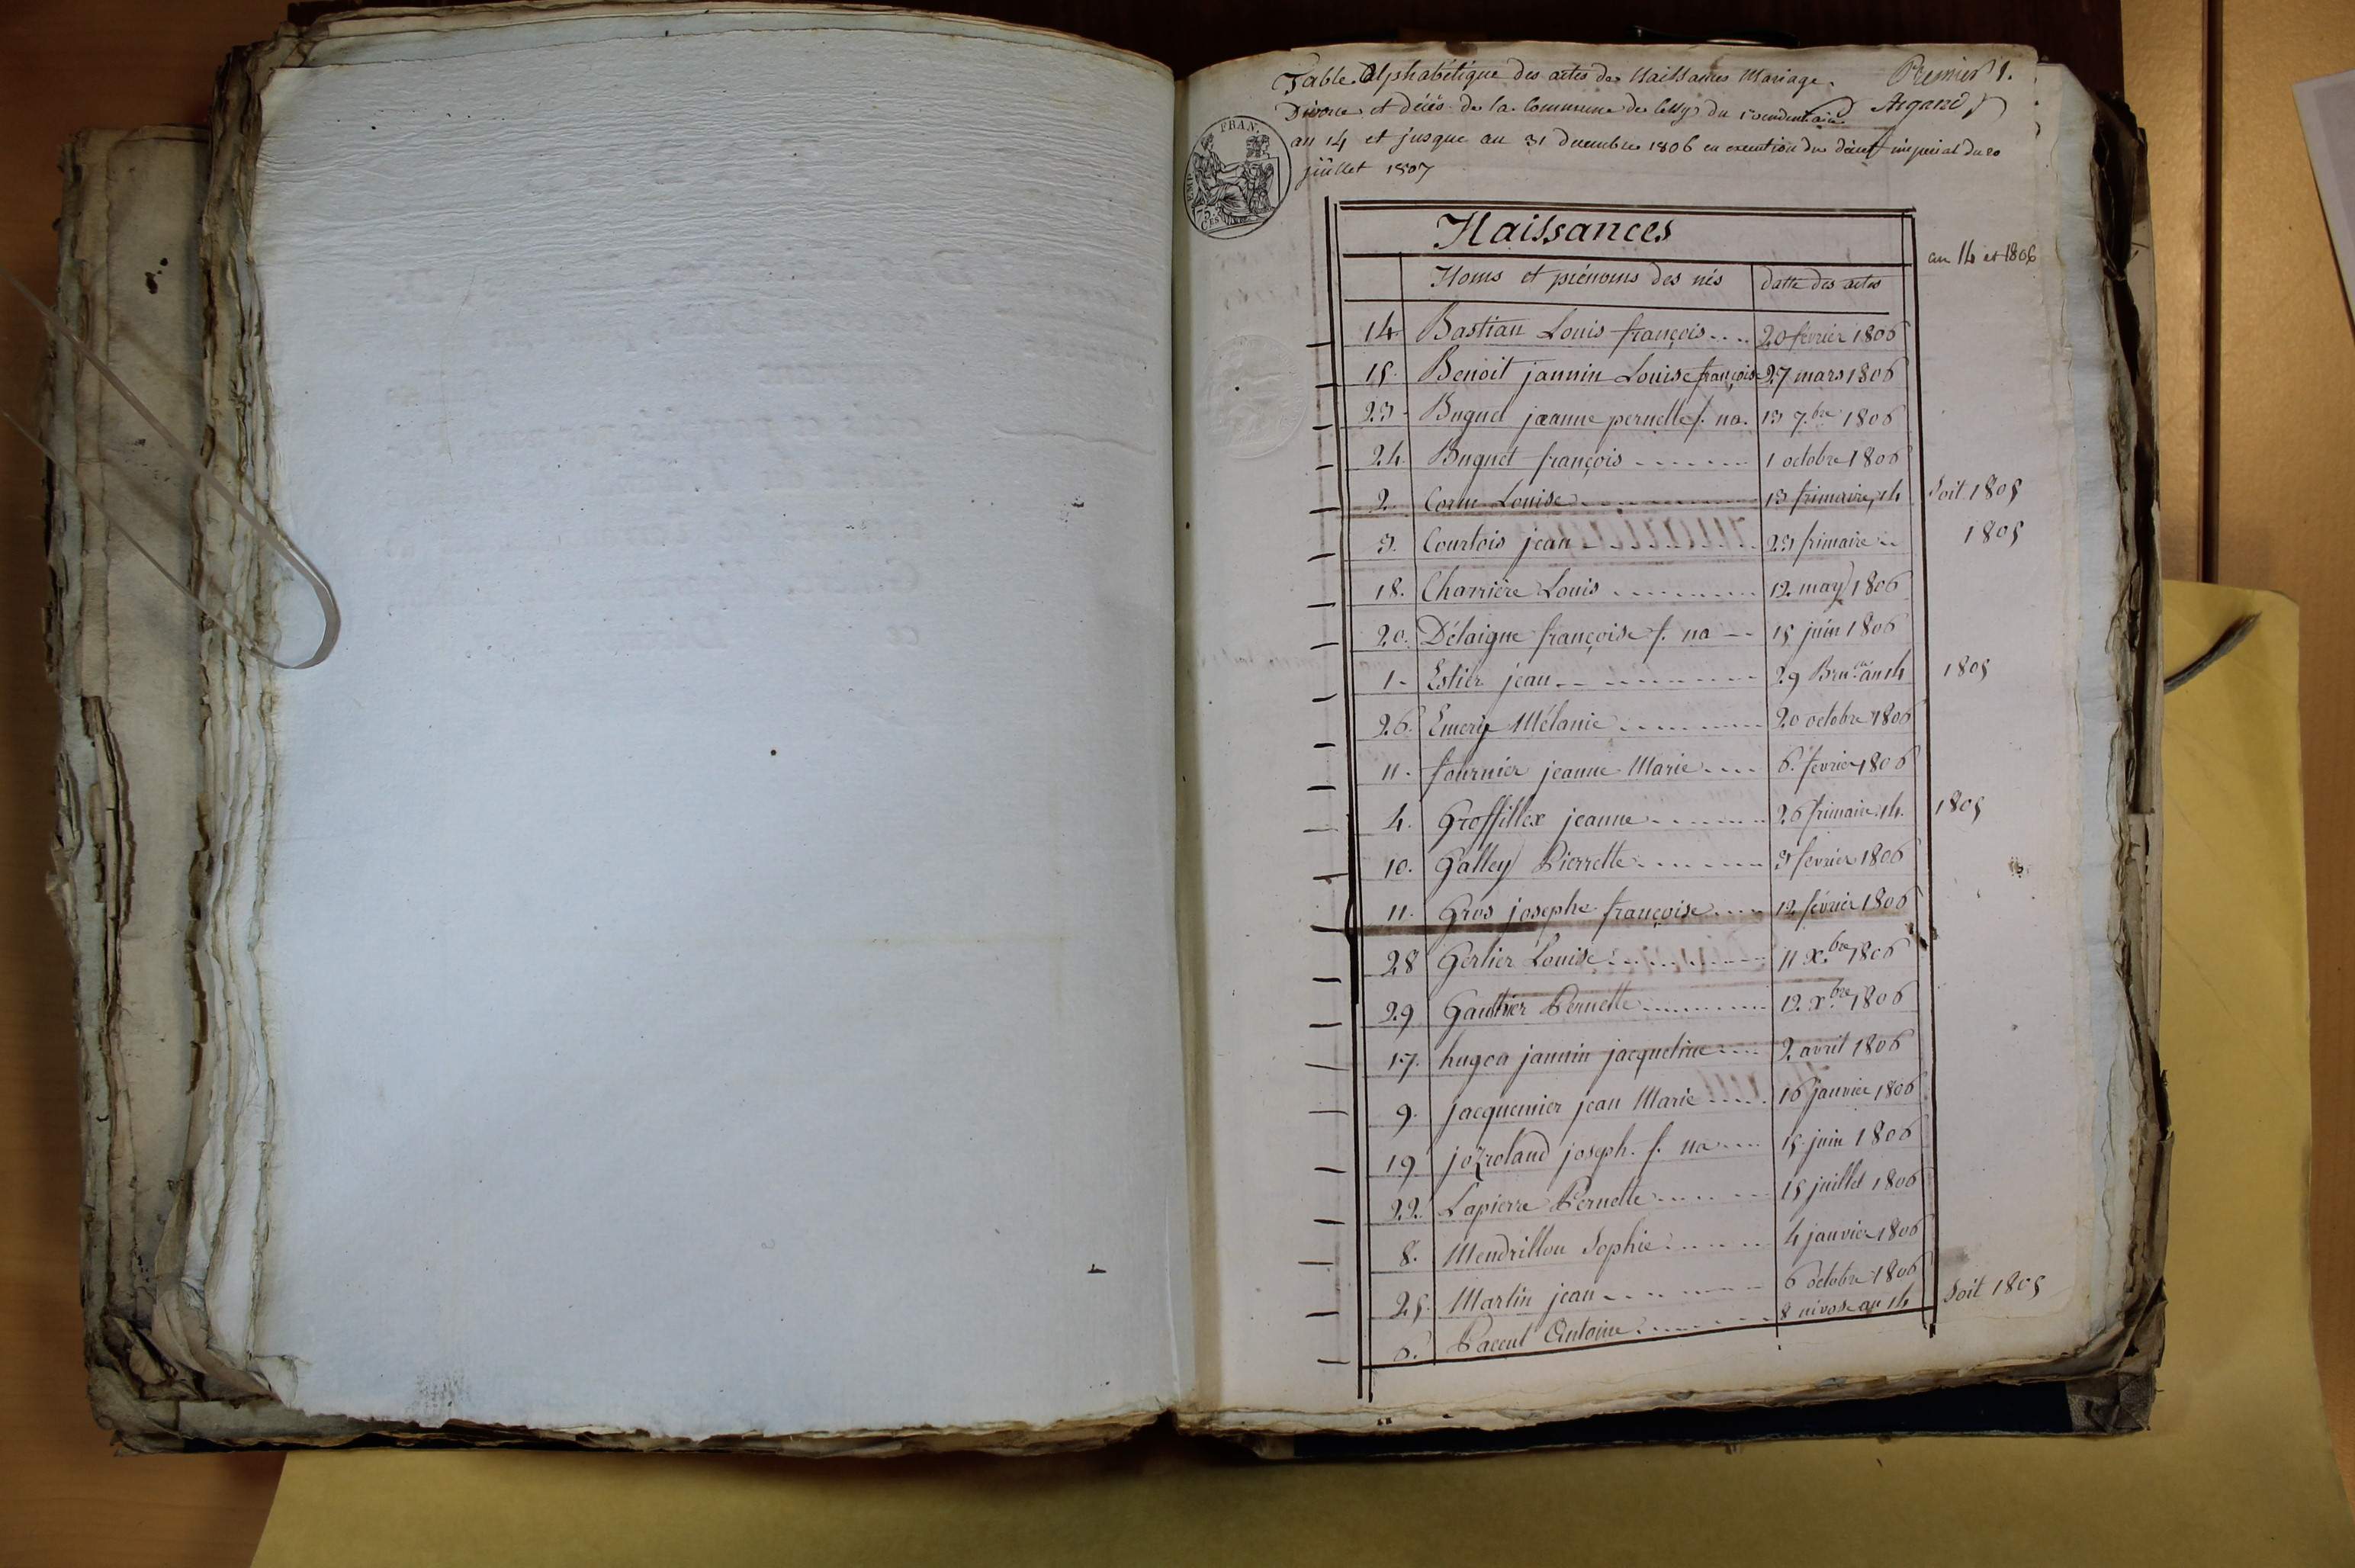 Table Alphabétique des actes des Naissances Mariage. Premier 1.
Divorce et décès de la Commune de Cessy du 1 vendemiaire Argand
an 14 et jusque au 31 decembre 1806 en execution du décret imperial du 20
juillet 1807
FRAN.
EMP
75
CES
Naissances
an 14 et 1806
Noms et prénoms des nés datte des actes
14. Bastian Louis françois .... 20 février 1806
15. Benoit jannin Louise françoise 27 mars 1806
23 - Buquet jeanne pernette f. na. 13 7.bre 1806
24. Buquet françois - - - - - - - 1 octobre 1806
2. Cornu Louise - - - - - - - 13 frimaire, 14 Soit 1805
3. Courtois jean - - - - - - - 23 frimaire .. 1805
18. Charrière Louis .......... 12 may 1806
20. Délaigue françoise f. na - - 15 juin 1806
1 - Estier jean - - - - - - - - 29 Bru.re an 14 1805
26. Emery Mélanie .......... 20 octobre 1806
11. fournier jeanne Marie .... 6. fevrier 1806
4. Groffillex jeanne ........ 26 frimaire 14. 1805
10. Galley Pierrette ......... 3 fevrier 1806
11. Gros josephe françoise .... 12 février 1806
28 Gerlier Louise .......... 11 X.bre 1806
29 Gauthier Pernette .......... 12. X.bre 1806
17. hugon jannin jacqueline .... 2 avril 1806
9. jacquemier jean Marie ..... 16 janvier 1806
19 joZroland joseph. f. na .... 15 juin 1806
22. Lapierre Pernette ........ 15 juillet 1806
8. Mendrillon Sophie ....... 4 janvier 1806
25. Martin jean - - - - - - - 6 octobre 1806
6. Paccut Antoine. ....... 8 nivose an 14 Soit 1805